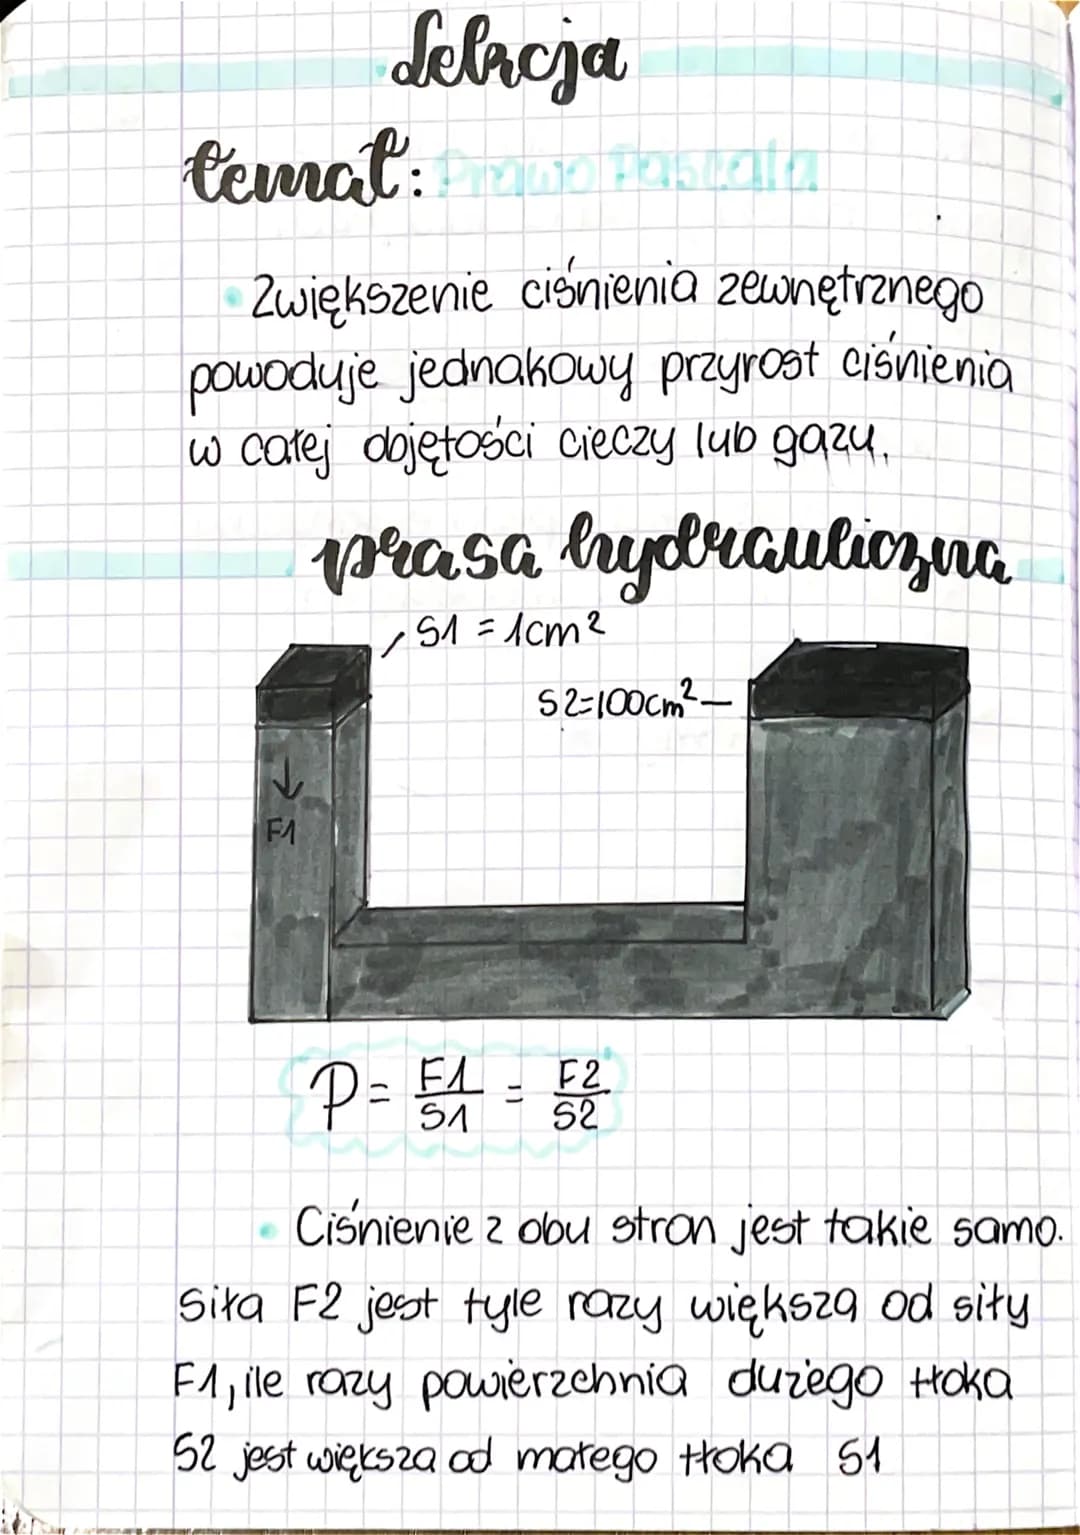 Lekcja
temat: Prawo Pascala
• Zwiększenie ciśnienia zewnętrznego
powoduje jednakowy przyrost ciśnienia
w całej objętości cieczy lub gazu.
prasa hydrauliczna
S1 = 1cm²
S2=100cm²
↓
F1
P = F1/S1 = F2/S2
• Ciśnienie z obu stron jest takie samo.
Siła F2 jest tyle razy większa od siły
F1, ile razy powierzchnia dużego tłoka
S2 jest większa od małego tłoka S1